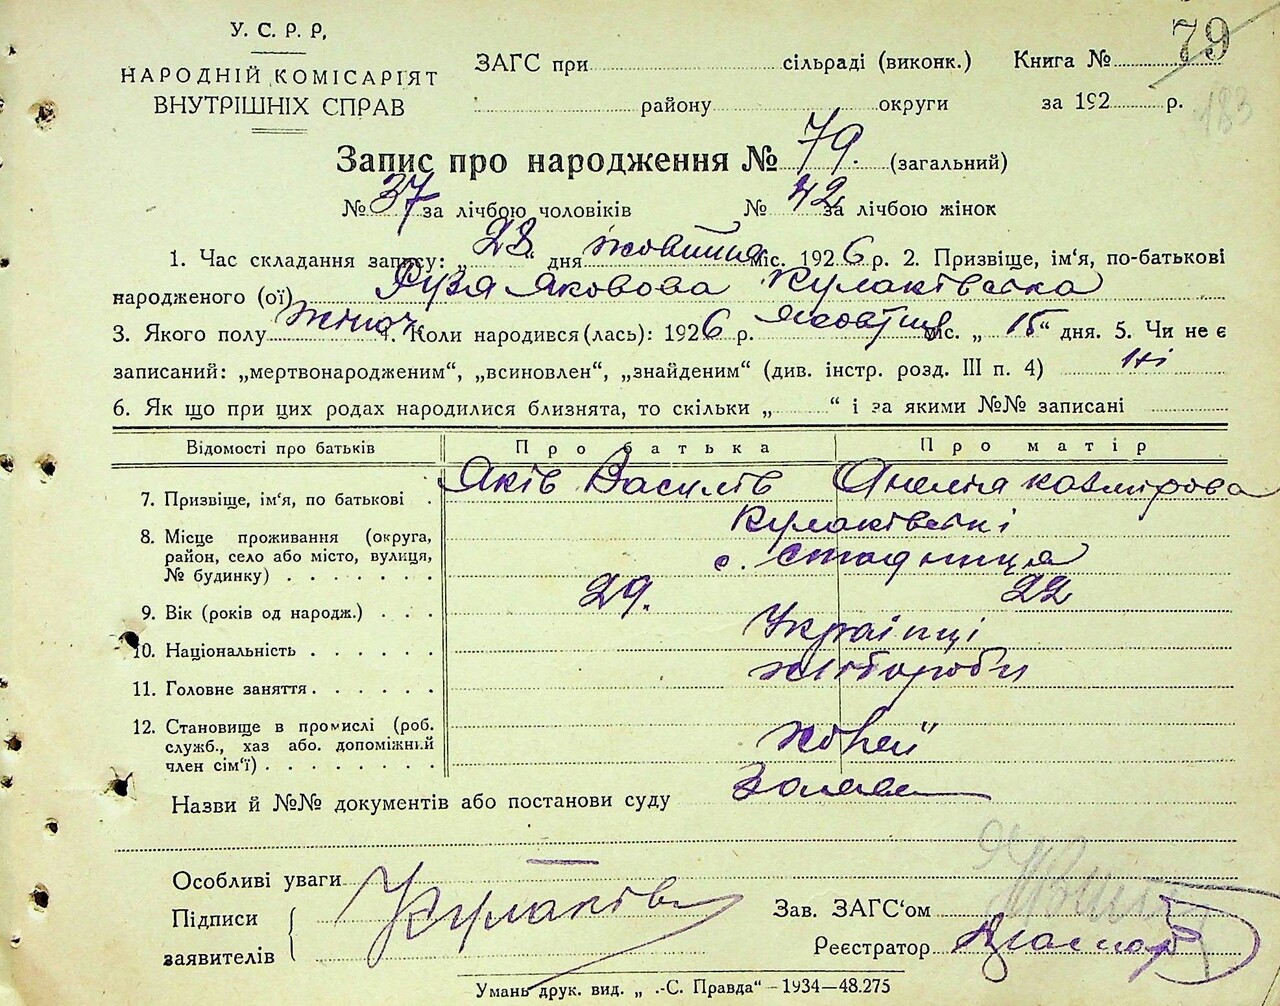 У. С. Р. Р.
НАРОДНІЙ КОМІСАРІЯТ
ВНУТРІШНІХ СПРАВ
ЗАГС при сільраді (виконк.) Книга №
79
району округи за 192 р.
183
Запис про народження № 79. (загальний)
№ 37 за лічбою чоловіків № 42 за лічбою жінок
1. Час складання запису: „ 28 “ дня жовтня міс. 1926 р. 2. Призвіще, ім'я, по-батькові
народженого (ої) Рузя Яковова Кулаківська
3. Якого полу жіноч 4. Коли народився (лась): 1926 р. жовтня міс. „ 15 “ дня. 5. Чи не є
записаний: „мертвонародженим“, „всиновлен“, „знайденим“ (див. інстр. розд. III п. 4) ні
6. Як що при цих родах народилися близнята, то скільки „ “ і за якими №№ записані
Відомості про батьків Про батька Про матір
7. Призвіще, ім'я, по батькові . Яків Василів Анелія Казмірова
Кулаківські
8. Місце проживання (округа,
район, село або місто, вулиця,
№ будинку) . . . . . . . с. Стадниця
9. Вік (років од народж.) . . . 29. 22
10. Національність . . . . . . Українці
11. Головне заняття . . . . . . хлібороби
12. Становище в промислі (роб.
служб., хаз або. допоміжний
член сім'ї) . . . . . . . .
Назви й №№ документів або постанови суду
Особливі уваги
Підписи
заявителів Кулаківс
Зав. ЗАГС'ом
Реєстратор
Умань друк. вид. „ .-С. Правда“ — 1934—48.275